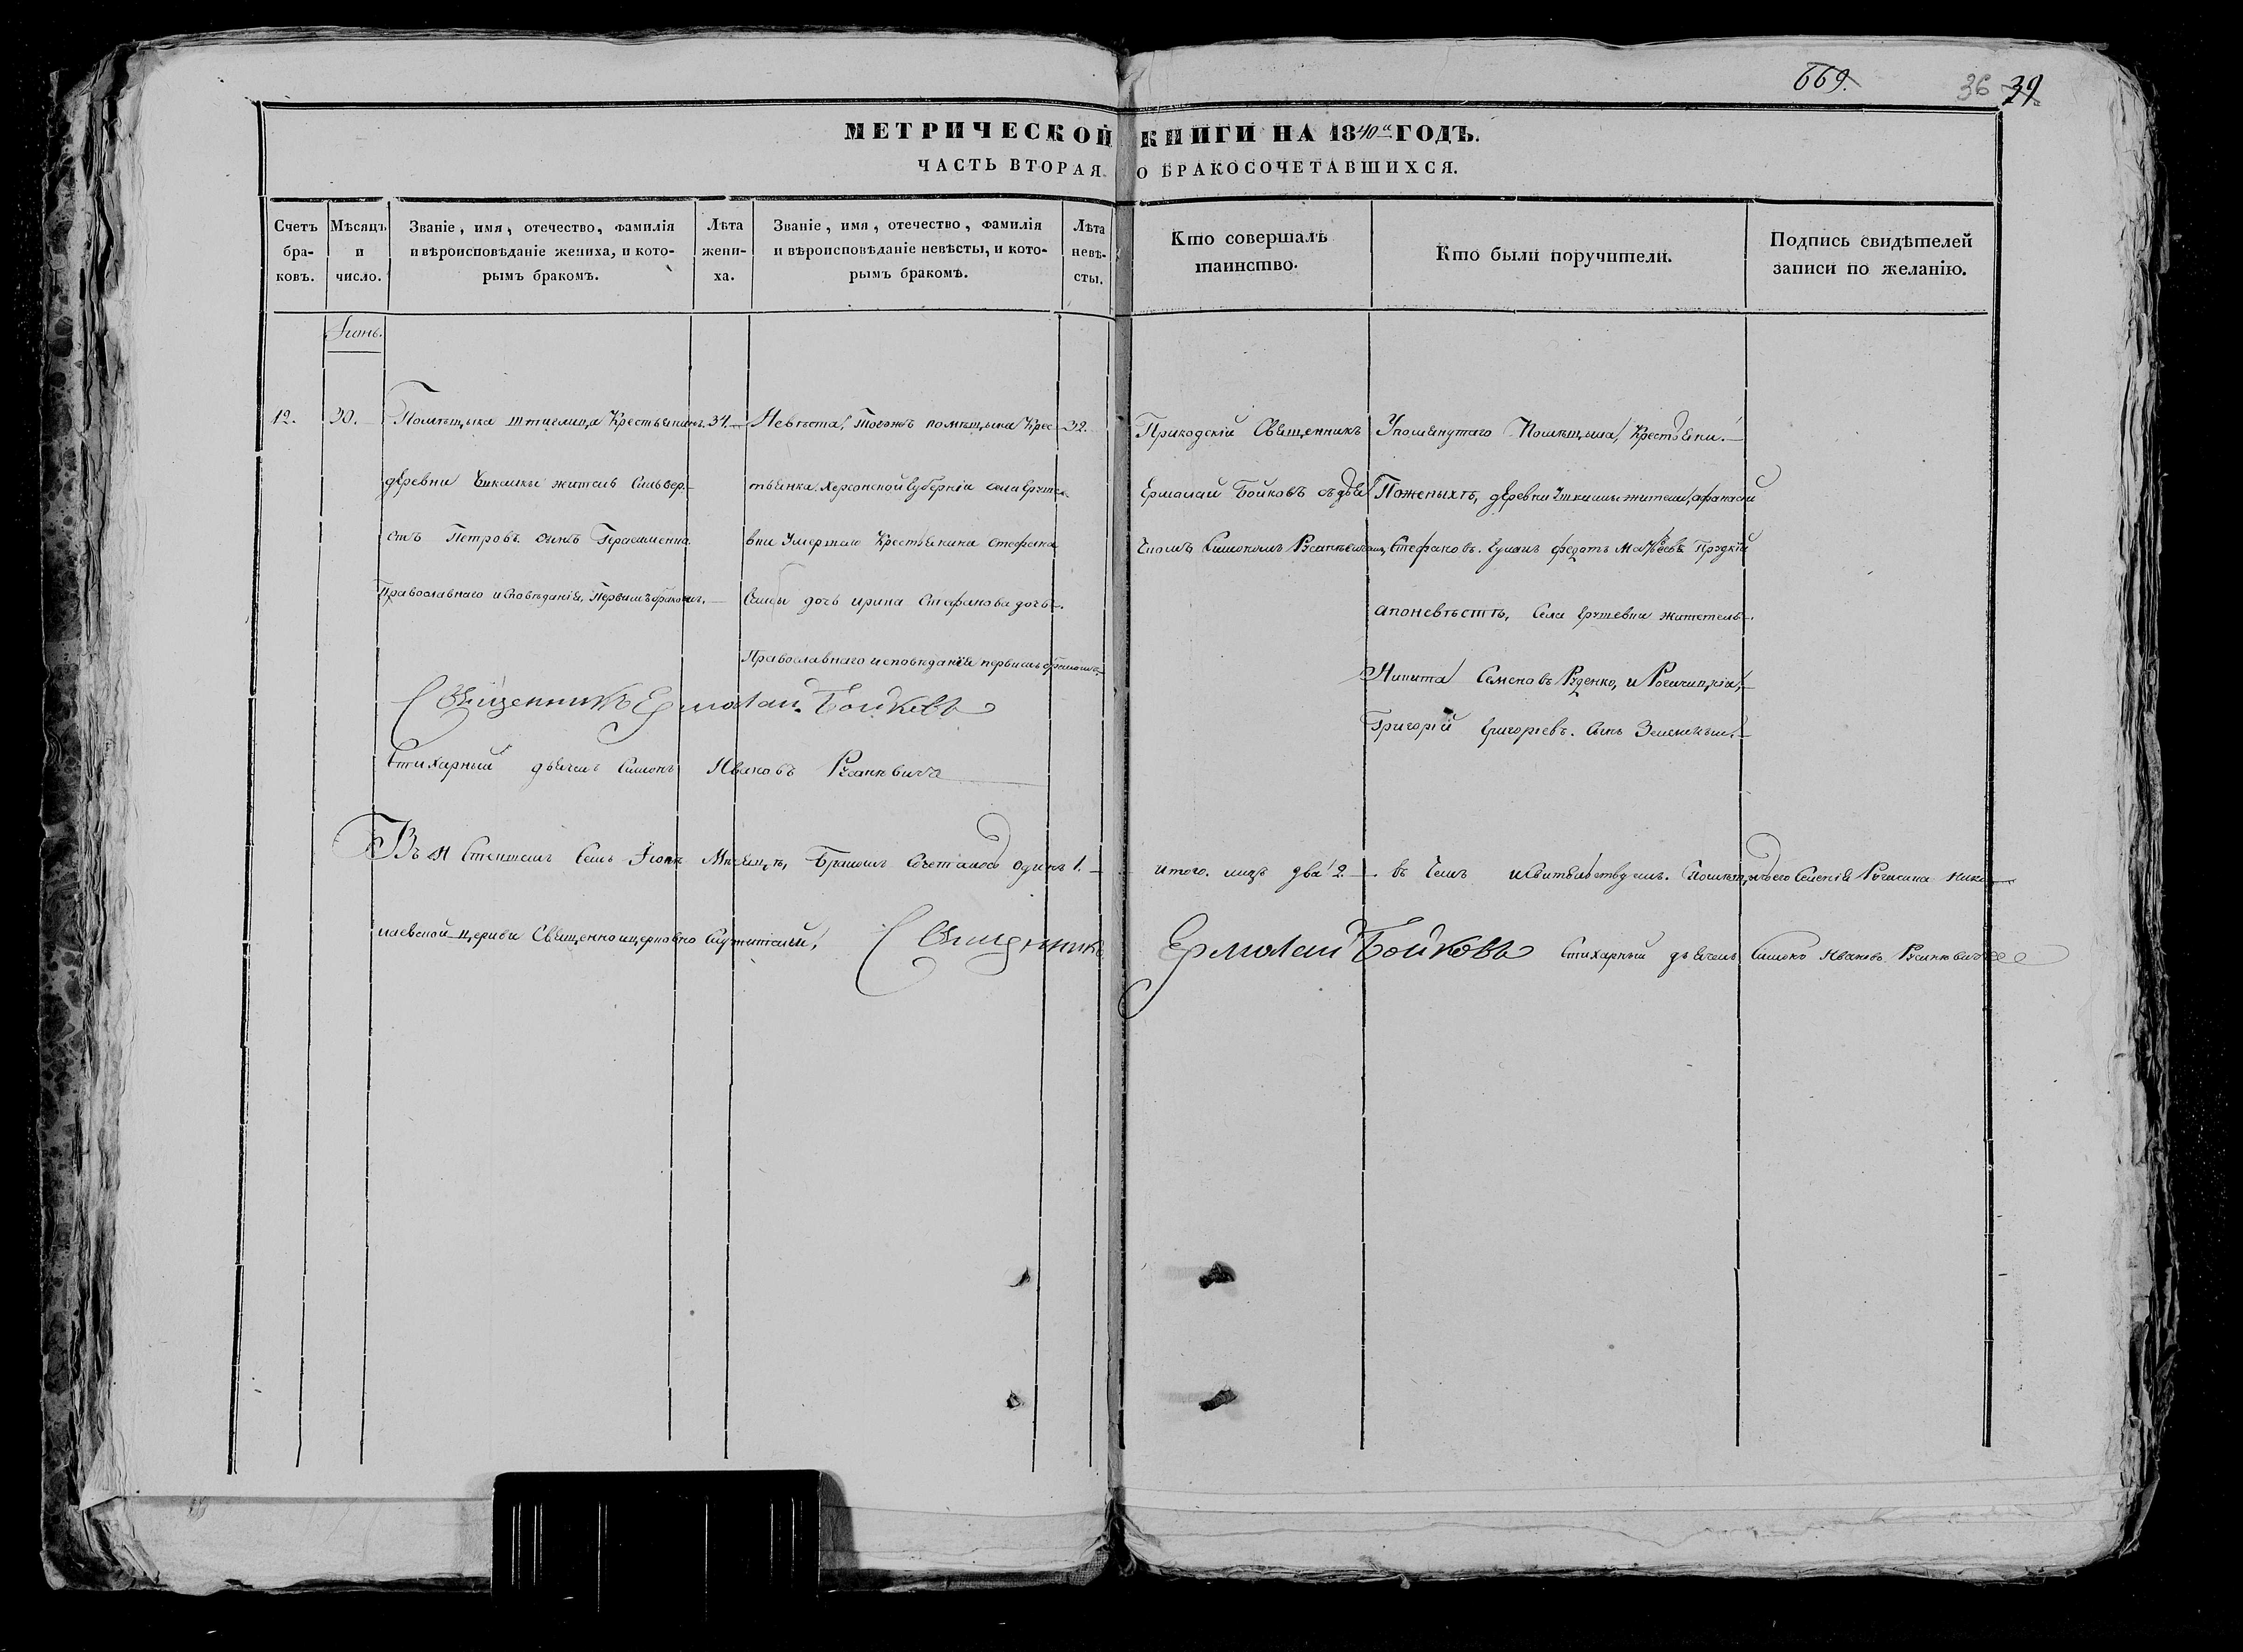 669.
36 39
МЕТРИЧЕСКОЙ КНИГИ НА 1840й ГОДЪ.
ЧАСТЬ ВТОРАЯ О БРАКОСОЧЕТАВШИХСЯ.
Счетъ бра- ковъ.
Мѣсяцъ и число.
Званіе, имя, отечество, фамилія
и вѣроисповѣданіе жениха, и кото-
рымъ бракомъ.
Лѣта жени- ха.
Званіе, имя, отечество, фамилія
и вѣроисповѣданіе невѣсты, и кото-
рымъ бракомъ.
Лѣта невѣ- сты.
Кто совершалъ
таинство.
Кто были поручители.
Подпись свидѣтелей
записи по желанію.
Іюнь.
12.
30.
Помѣщика Штиглица Крестьянинъ.
деревни житель Сильвер-
стъ Петровъ сынъ Герасименко
Православнаго исповѣданія, Первымъ бракомъ.
34.
Невѣста, тогожъ помѣщика Крес-
тьянка Херсонской Губерніи села
вки Умершаго Крестьянина Стефана
дочь ирина Стефанова дочь.
Православнаго исповѣданія первымъ бракомъ
32.
Приходскій Священникъ
Ермолай Бойковъ съ дья
чкомъ Симономъ
Упомянутаго Помѣщика, Крестьяне.
По женихѣ, деревни жители, афанасий
Стефановъ. федотъ Матвѣевъ
а по невѣстѣ, Села житетель.
Никита Семеновъ Руденко, и
Григорій Григорьевъ. Сынъ
Священникъ Ермолай Бойковъ
Стихарный дьячекъ Симонъ Ивановъ
Въ Семъ Іюнѣ Мѣсяцѣ, Бракомъ Сочеталось одинъ 1. итого. лицъ два 2. въ Чемъ Селенія Нико
лаевской церкви Священноцерковно Служители, Священникъ Ермолай Бойковъ Стихарный дьячекъ Симонъ Ивановъ